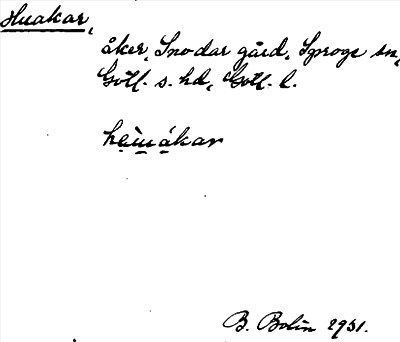 Huakar,
åker, Snodar gård, Sproge sn,
Gotl. s. hd, Gotl. l.
hæ̀u̯ákar
B. Bolin 1931.